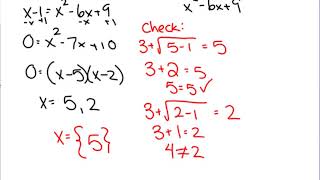 x-1 = x²-6x+9
-x +1 -x +1
0 = x²-7x+10
0=(x-5)(x-2)
x = 5, 2
x = {5}
x²-6x+9
Check:
3+√5-1 = 5
3+2 = 5
5=5 ✓
3+√2-1 = 2
3+1 = 2
4≠2